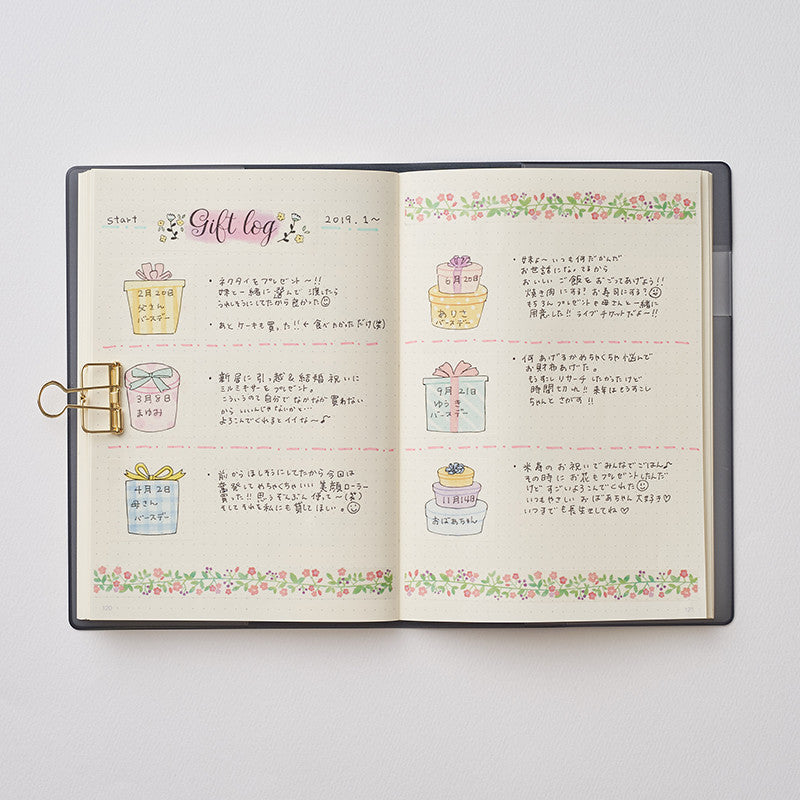 start
Gift log
2019.1～
2月20日
父さん
バースデー
・ネクタイをプレゼント〜!!
妹と一緒に選んで渡したら
うれしそうにしてたから良かった
・あと、ケーキも買った!!←食べたかっただけ(笑)
3月8日
まゆみ
・新居に引っ越し&結婚祝いに
ミルミキサーをプレゼント。
こういうので自分でなかなか買わない
から いいんじゃないかと…
よろこんでくれるとイイな〜♪
4月2日
母さん
バースデー
・前からほしそうにしてたから今回は
奮発してめちゃくちゃいい 美顔ローラー
買った!! 思うぞんぶん使って〜(笑)
そしてそれを私にも貸してほしい。
120
6月20日
ありさ
バースデー
・妹よ〜いつも何だかんだ
お世話になってるから
おいしいご飯をおごってあげよう!!
焼き肉にする? お寿司にする?
もちろんプレゼントも母さんと一緒に
用意した!! ライブチケットだよ〜!!
9月21日
ゆうき
バースデー
・何あげるかめちゃくちゃ悩んで
お財布あげた。
もうすこしリサーチしたかったけど
時間切れ!! 来年はもうすこし
ちゃんとさがす!!
11月14日
おばあちゃん
・米寿のお祝いでみんなでごはん♪
その時にお花もプレゼントしたんだ
けどすごいよろこんでくれた
いつもやさしい おばあちゃん大好き♡
いつまでも長生きしてね♡
121